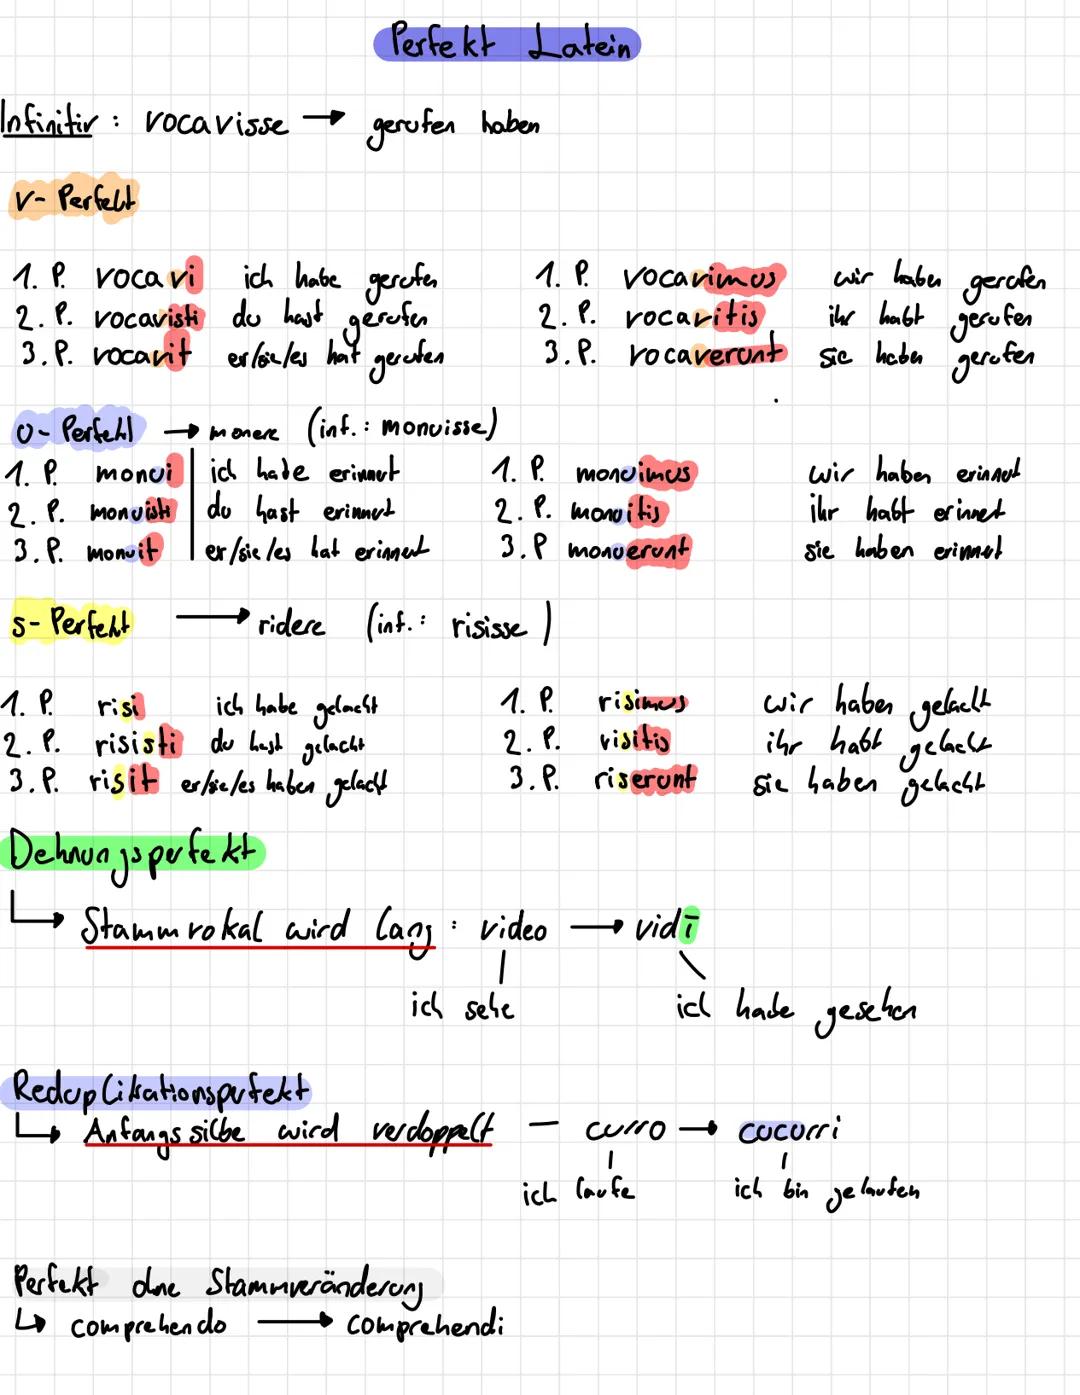 Perfekt Latein
Infinitiv : vocavisse → gerufen haben
v- Perfekt
1. P. vocavi ich habe gerufen 1. P. vocavimus wir haben gerufen
2. P. vocavisti du hast gerufen 2. P. vocavitis ihr habt gerufen
3. P. vocavit er/sie/es hat gerufen 3. P. vocaverunt sie haben gerufen
u- Perfekt → monere (inf.: monuisse)
1. P. monui ich habe erinnert 1. P. monuimus wir haben erinnert
2. P. monuisti du hast erinnert 2. P. monuitis ihr habt erinnert
3. P. monuit er/sie/es hat erinnert 3. P monuerunt sie haben erinnert
s- Perfekt → ridere (inf.: risisse)
1. P. risi ich habe gelacht 1. P. risimus wir haben gelacht
2. P. risisti du hast gelacht 2. P. risitis ihr habt gelacht
3. P. risit er/sie/es haben gelacht 3. P. riserunt sie haben gelacht
Dehnungsperfekt
↳ Stammvokal wird lang : video → vidī
ich sehe ich habe gesehen
Reduplikationsperfekt
↳ Anfangssilbe wird verdoppelt – curro → cucurri
ich laufe ich bin gelaufen
Perfekt ohne Stammveränderung
↳ comprehendo → comprehendi